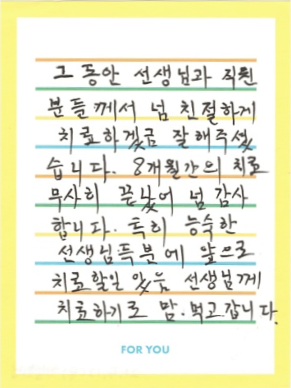 그동안 선생님과 직원
분들께서 넘 친절하게
치료하겠끔 잘해주셨
습니다. 8개월간의 치료
무사히 끝났어 넘 감사
합니다. 특히 능숙한
선생님득분에 앞으로
치료할일 있음 선생님께
치료하기로 맘.먹고갑니다.
FOR YOU